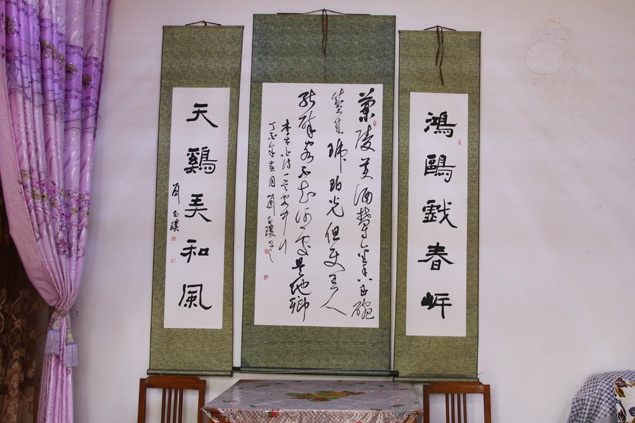 鴻鷗戲春岸
蘭陵美酒鬱金香玉碗
盛來琥珀光但使主人
能醉客不知何處是他鄉
李白詩一首客中行
天鷄美和風